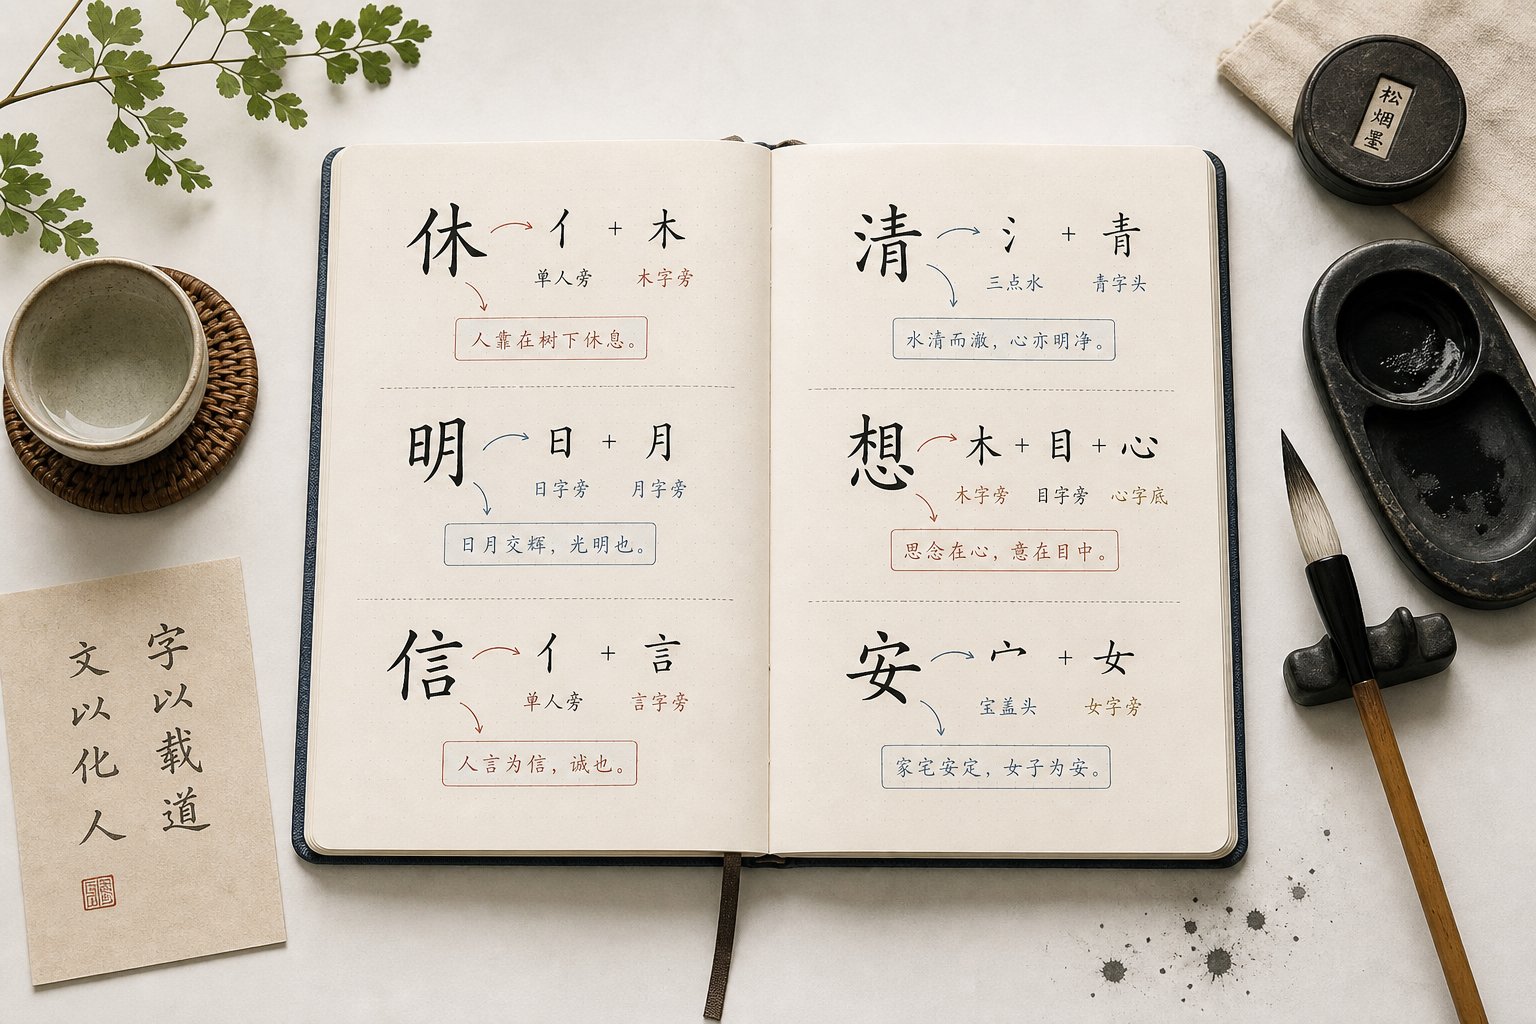 休 亻 + 木
单人旁 木字旁
人靠在树下休息。
明 日 + 月
日字旁 月字旁
日月交辉，光明也。
信 亻 + 言
单人旁 言字旁
人言为信，诚也。
清 氵 + 青
三点水 青字头
水清而澈，心亦明净。
想 木 + 目 + 心
木字旁 目字旁 心字底
思念在心，意在目中。
安 宀 + 女
宝盖头 女字旁
家宅安定，女子为安。
字以载道
文以化人
松烟墨